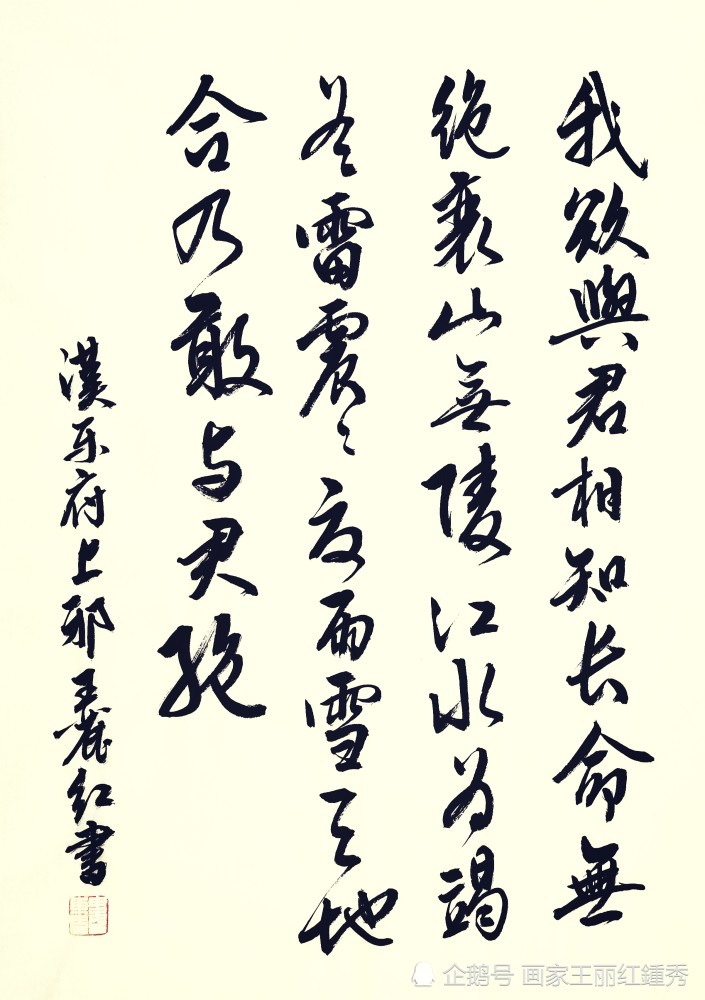 我欲與君相知长命無
绝衰山無陵江水为竭
冬雷震々夏雨雪天地
合乃敢与君绝
漢乐府上邪王麗红书
企鹅号 画家王丽红鍾秀